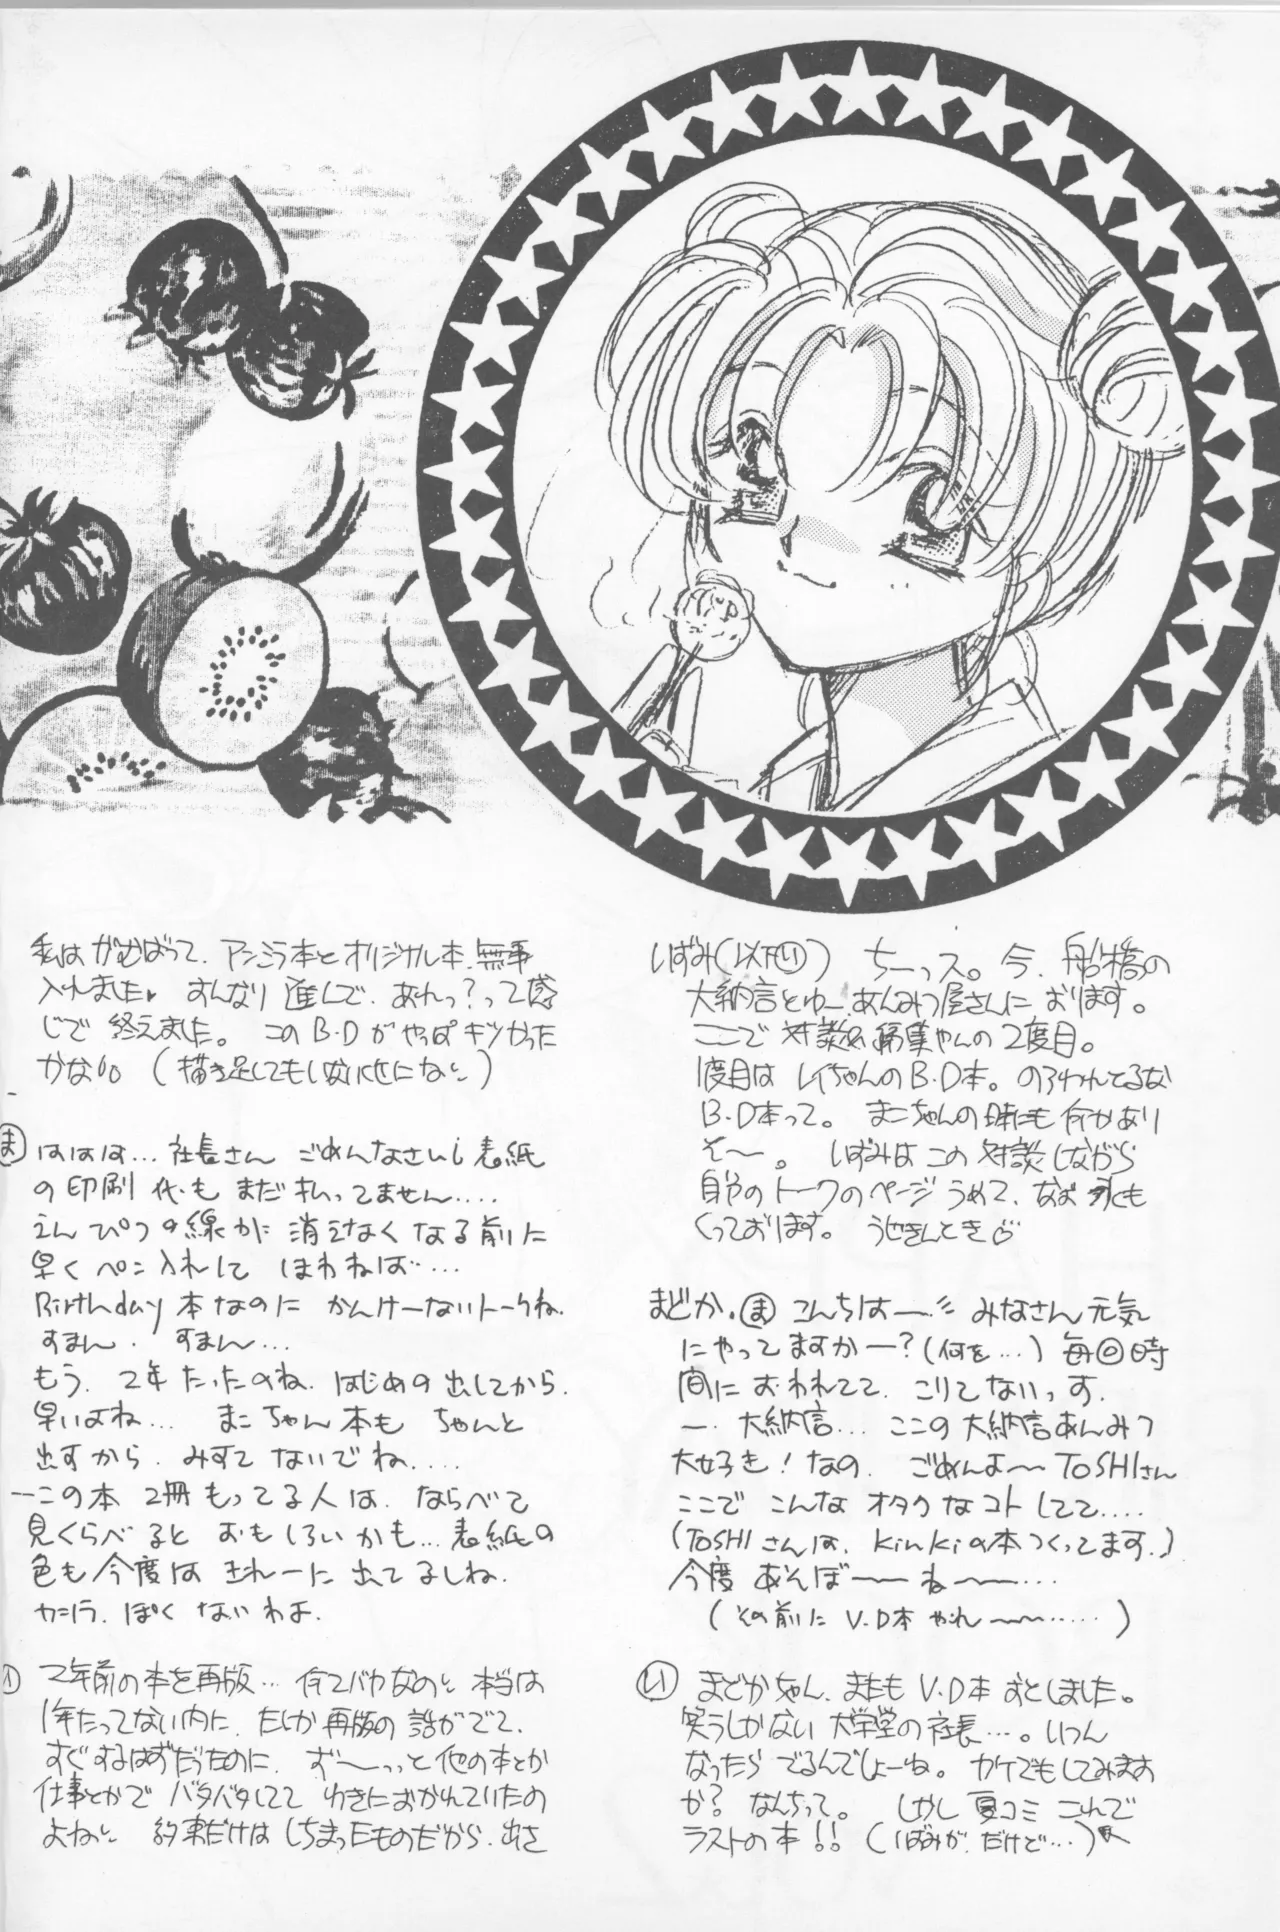 いずみ(以下い) ちーっス。今、船橋の
大納言とゆー、あんみつ屋さんにおります。
ここで対談&編集やんの2度目。
1度目はレイちゃんのB.D本。のろわれてるな
B.D本って。まこちゃんの時にも何かあり
そ〜。 いずみはこの対談しながら
自分のトークのページうめて、なお氷も
くっております。うせきんとき♡
まどか.ま こんちはー〃 みなさん元気
にやってますかー?(何を…) 毎回時
間におわれてて、こりてないっす.
一、大納言… ここの大納言あんみつ
大好き!なの. ごめんよ〜TOSHIさん
ここで こんな オタクなコトしてて....
(TOSHIさんは、KinKiの本つくってます.)
今度 あそぼ〜〜ね〜〜…
(その前に V.D本 やれ〜〜……)
い まどかちゃん、またも V.D本 おとしました。
笑うしかない 大学堂の社長…。いつん
なったら でるんでしょーね。カケでもしてみます
か? なんちって。 しかし 夏コミ これで
ラストの本!!(いずみが、だけど…)
私は がむばって、アンジラ本とオリジナル本、無事
入れました♥ すんなり進んで、あれっ?って感
じで 終えました。 このB.Dがやっぱ キツかった
かな。(描き足してもしないくせになぁ)
ま ははは… 社長さん ごめんなさいi 表紙
の印刷代も まだ払ってません....
えんぴつの線が 消えなくなる前に
早く ペン入れして ほわねば……
Birthday 本なのに かんけーないトークね.
すまん. すまん…
もう. 2年たったのね. はじめの出してから.
早いよね… まこちゃん本も ちゃんと
出すから. みすてないでね....
―この本 2冊もってる人は、ならべて
見くらべると おもしろいかも… 表紙の
色も今度は きれーに出てるしね.
カニバラ.ぽくないわよ.
い 2年前の本を再版… 何てバカなの〜 本当は
1年たってない内に、たしか再版の話がでて、
すぐするはずだったのに、ず〜っっと他の本とか
仕事とかで バタバタしてて わきにおかれていたの
よね〜 約束だけは しちまったものだから、出さ